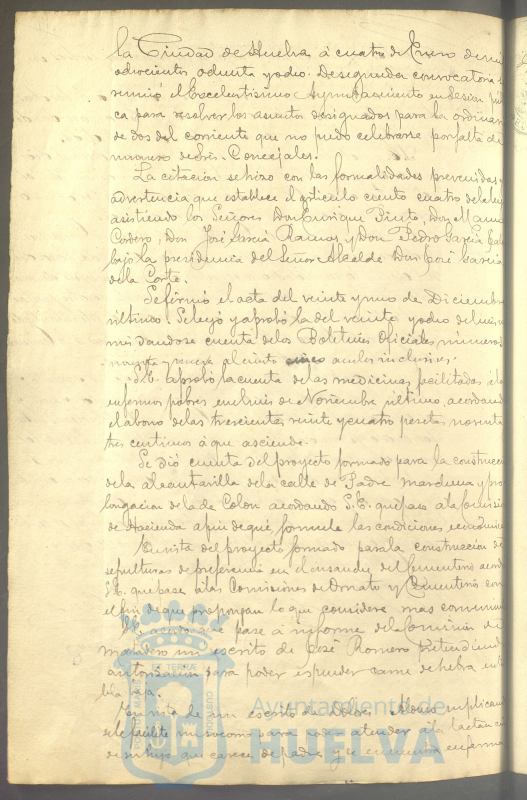 la Ciudad de Huelva á cuatro de Enero de mil
ochocientos ochenta y ocho. Desegunda convocatoria se
reunió el Excelentísimo Ayuntamiento en Sesion púb
ca para resolver los asuntos designados para la ordinaria
de dos del corriente que no pudo celebrarse por falta de
número de Sres. Concejales.
La citacion se hizo con las formalidades prevenidas y
advertencia que establece el artículo ciento cuatro de la ley
asistiendo los Señores Don Enrique Pinto, Don Manuel
Cordero, Don José Garcia Ramos y Don Pedro Garcia
bajo la presidencia del Señor Alcalde Don José Garcia
de la Corte.
Se firmó el acta del veinte y uno de Diciembre
último. Se leyó y aprobó la del veinte y ocho del mismo
dandose cuenta de los Boletines Oficiales números
noventa y nueve al ciento cinco ambos inclusives.
S.E. aprobó la cuenta de las medicinas facilitadas á los
enfermos pobres en el mes de Noviembre último, acordando
el abono de las trescientas veinte y cuatro pesetas noventa
tres centimos á que asciende.
Se dió cuenta del proyecto formado para la construcc
de la alcantarilla de la calle de Padre Marchena y pro
longacion de la de Colon acordando S.E. que pase á la Comision
de Hacienda á fin de que formule las condiciones económicas
En vista del proyecto formado para la construccion de
sepulturas de preferencia en el ensanche del Cementerio acordó
S.E. que pase á las Comisiones de Ornato y Cementerios con
el fin de que propongan lo que considere mas conveniente
Se acordó que pase á informe de la Comision de
Matadero un escrito de José Romero pretendiendo
autorizacion para poder espender carne de hebra en la
En vista de un escrito de suplican
se le facilite un socorro para poder atender á la lactancia
de su hijo que carece de padre y se encuentra enferma
POR TERRA
Ayuntamiento de
HUELVA